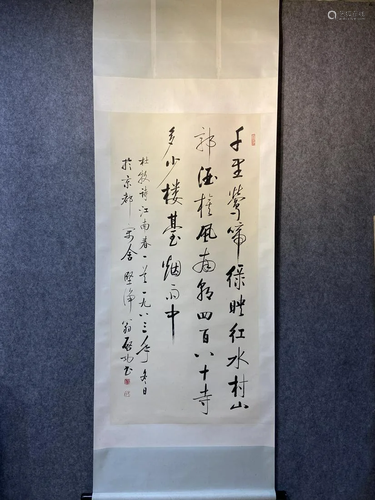 千里莺啼绿映红水村山
郭酒旗風南朝四百八十寺
多少楼臺烟雨中
杜牧诗江南春一首一九八三年冬日
於京都寓舍坚净翁启功书